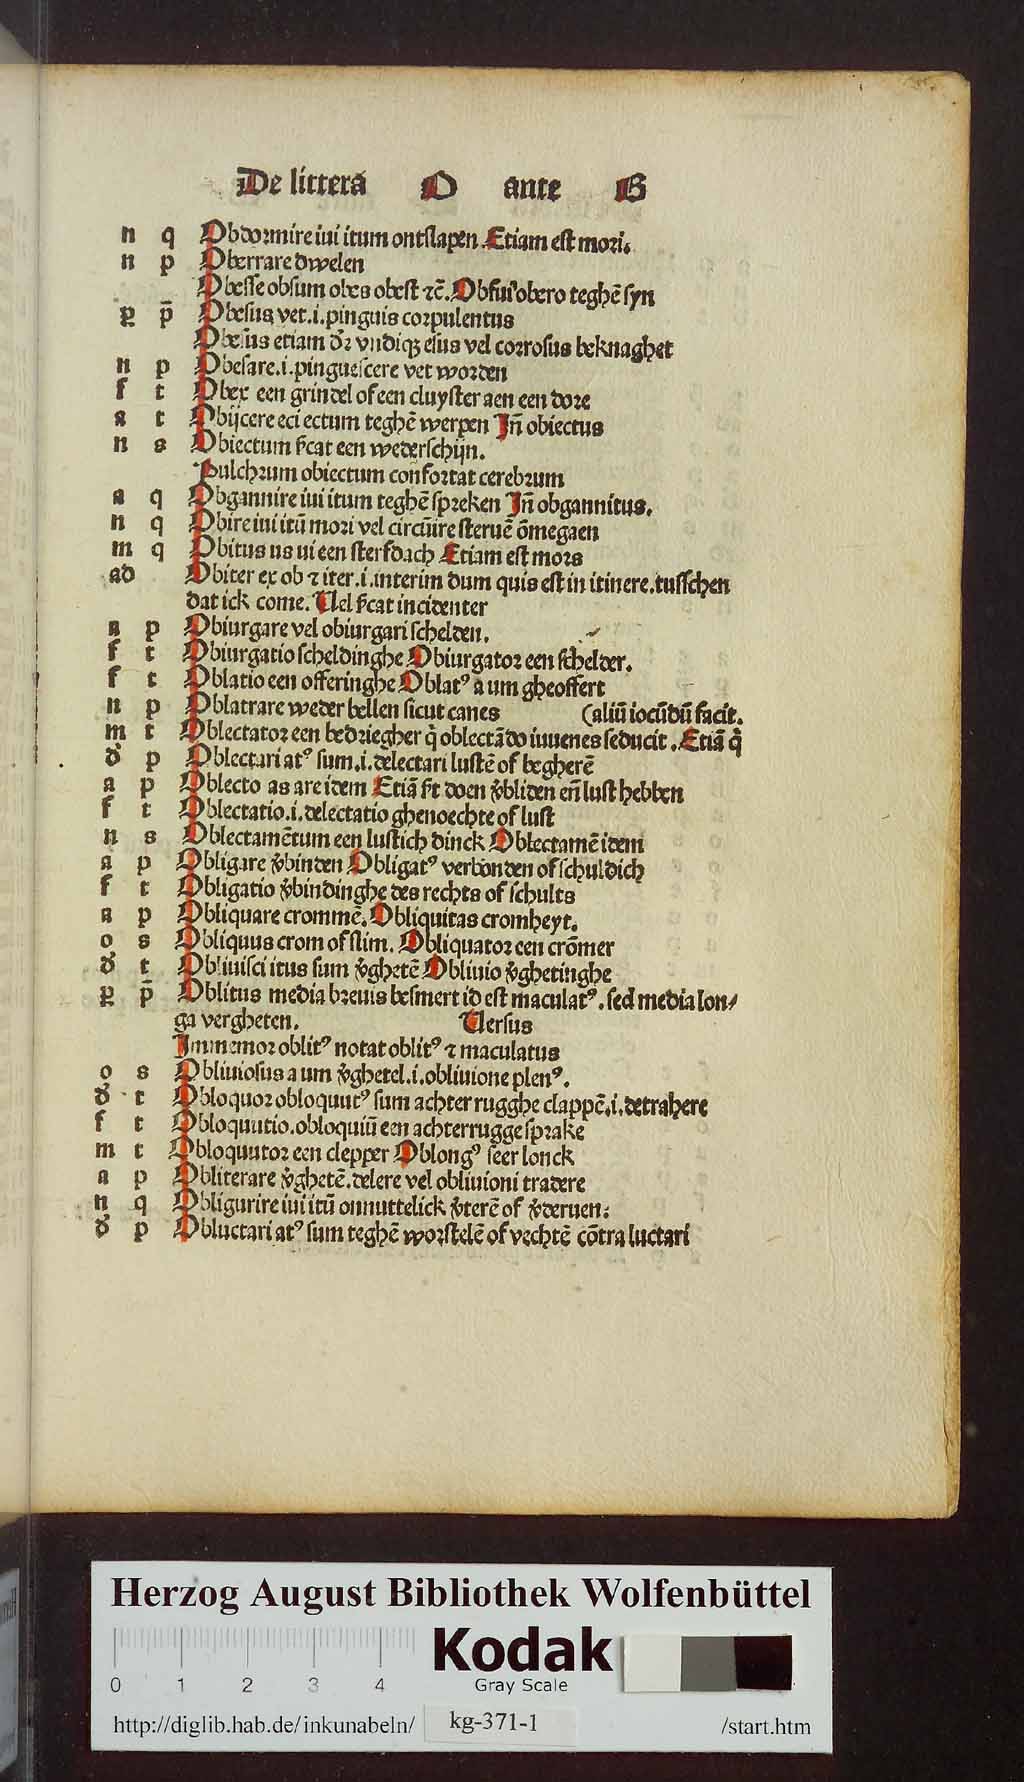 De litterā O ante B
n q Obdormire iui itum ontslapen Etiam est mori.
n p Oberrare dwelen
Obesse obsum obes obest ⁊c̄. Obfui obero teghē syn
ꝑ p̄ Obesus vet .i. pinguis corpulentus
Obesus etiam dr̄ vndiqꝫ esus vel corrosus beknaghet
n p Obesare .i. pinguescere vet worden
f t Obex een grindel of een cluyster aen een dore
a t Obijcere eci ectum teghē werpen Jn̄ obiectus
n s Obiectum ſ̄cat een wederschijn.
Pulchrum obiectum confortat cerebrum
a q Obgannire iui itum teghē spreken Jn̄ obgannitus.
n q Obire iui itū mori vel circūire steruē ōmegaen
m q Obitus us ui een sterfdach Etiam est mors
ad Obiter ex ob ⁊ iter .i. interim dum quis est in itinere. tusschen
dat ick come. Uel ſ̄cat incidenter
a p Obiurgare vel obiurgari schelden.
f t Obiurgatio scheldinghe Obiurgator een schelder.
f t Oblatio een offeringhe Oblatꝰ a um gheoffert
n p Oblatrare weder bellen sicut canes (aliū iocūdū facit.
m t Oblectator een bedriegher q̇ oblectādo iuuenes seducit. Etiā q̇
d̓ p Oblectari atꝰ sum .i. delectari lustē of begherē
a p Oblecto as are idem Etiā ſ̄t doen v̓bliden eñ lust hebben
f t Oblectatio .i. delectatio ghenoechte of lust
n s Oblectamētum een lustich dinck Oblectamē idem
a p Obligare v̓binden Obligatꝰ verbonden of schuldich
f t Obligatio v̓bindinghe des rechts of schults
a p Obliquare crommē. Obliquitas cromheyt.
o s Obliquus crom of slim. Obliquator een crōmer
d̓ t Obliuisci itus sum v̓ghetē Obliuio v̓ghetinghe
ꝑ p̄ Oblitus media breuis besmert id est maculatꝰ. sed media lon/
ga vergheten. Uersus
Jmmemor oblitꝰ notat oblitꝰ ⁊ maculatus
o s Obliuiosus a um v̓ghetel .i. obliuione plenꝰ.
d̓ t Obloquor obloquutꝰ sum achter rugghe clappē .i. detrahere
f t Obloquutio. obloquiū een achterrugge sprake
m t Obloquutor een clepper Oblongꝰ seer lonck
a p Obliterare v̓ghetē. delere vel obliuioni tradere
n q Obligurire iui itū onnuttelick v̓terē of v̓deruen.
d̓ p Obluctari atꝰ sum teghē worstelē of vechtē cōtra luctari
Herzog August Bibliothek Wolfenbüttel
Kodak
Gray Scale
0 1 2 3 4
http://diglib.hab.de/inkunabeln/ kg-371-1 /start.htm